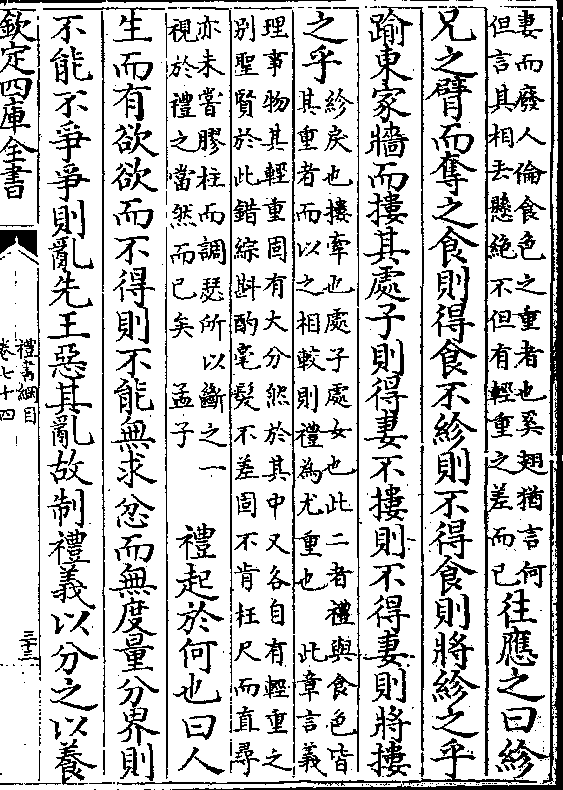 妻而廢人倫食色之重者也奚翅猶言何
但言其相去懸絶不但有輕重之差而已
往應之曰紾
兄之臂而奪之食則得食不紾則不得食則將紾之乎
踰東家牆而摟其處子則得妻不摟則不得妻則將摟
之乎
紾戾也摟牽也處子處女也此二者禮與食色皆
其重者而以之相較則禮為尤重也　此章言義
理事物其輕重固有大分然於其中又各自有輕重之
别聖賢於此錯綜斟酌毫髮不差固不肯枉尺而直尋
亦未嘗膠柱而調瑟所以斷之一
視於禮之當然而已矣　孟子
禮起於何也曰人
生而有欲欲而不得則不能無求忿而無度量分界則
不能不爭爭則亂先王惡其亂故制禮義以分之以養
欽定四庫全書
禮書綱目
卷七十四
三十三